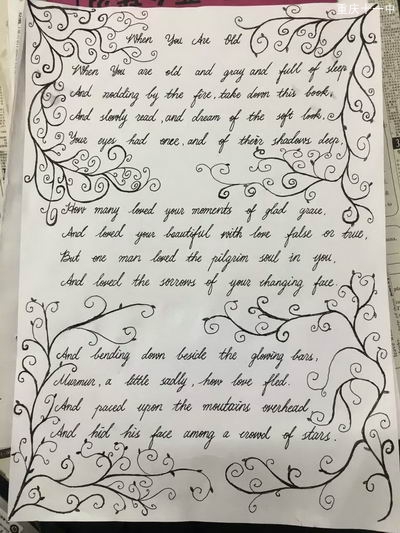 重庆十一中
When You Are Old
When You are old and gray and full of sleep
And nodding by the fire, take down this book,
And slowly read, and dream of the soft look,
Your eyes had once, and of their shadows deep,
How many loved your moments of glad grace,
And loved your beautiful with love false or true,
But one man loved the pilgrim soul in you,
And loved the sorrows of your changing face.
And bending down beside the glowing bars,
Murmur, a little sadly, how love fled.
And paced upon the moutains overhead,
And hid his face among a crowd of stars.